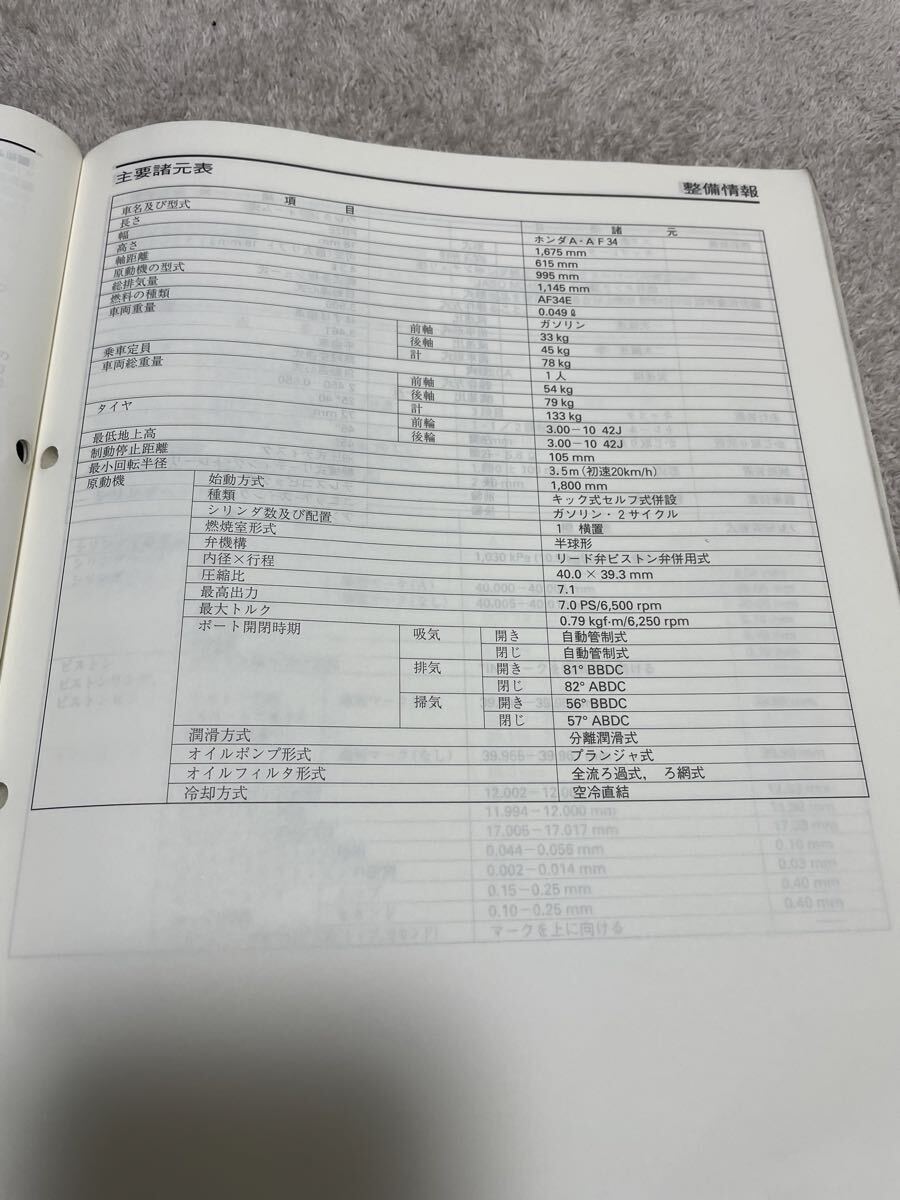 主要諸元表
整備情報
項 目 諸 元
車名及び型式 ホンダA-AF34
長さ 1,675 mm
幅 615 mm
高さ 995 mm
軸距離 1,145 mm
原動機の型式 AF34E
総排気量 0.049 ℓ
燃料の種類 ガソリン
車両重量 前軸 33 kg
後軸 45 kg
計 78 kg
乗車定員 1人
車両総重量 前軸 54 kg
後軸 79 kg
計 133 kg
タイヤ 前輪 3.00-10 42J
後輪 3.00-10 42J
最低地上高 105 mm
制動停止距離 3.5m(初速20km/h)
最小回転半径 1,800 mm
原動機 始動方式 キック式セルフ式併設
種類 ガソリン・2サイクル
シリンダ数及び配置 1 横置
燃焼室形式 半球形
弁機構 リード弁ピストン弁併用式
内径×行程 40.0 × 39.3 mm
圧縮比 7.1
最高出力 7.0 PS/6,500 rpm
最大トルク 0.79 kgf·m/6,250 rpm
ポート開閉時期 吸気 開き 自動管制式
閉じ 自動管制式
排気 開き 81° BBDC
閉じ 82° ABDC
掃気 開き 56° BBDC
閉じ 57° ABDC
潤滑方式 分離潤滑式
オイルポンプ形式 プランジャ式
オイルフィルタ形式 全流ろ過式, ろ網式
冷却方式 空冷直結
11.994-12.000 mm
17.006-17.017 mm
0.044-0.056 mm
0.002-0.014 mm
0.15-0.25 mm 0.40 mm
0.10-0.25 mm 0.40 mm
マークを上に向ける